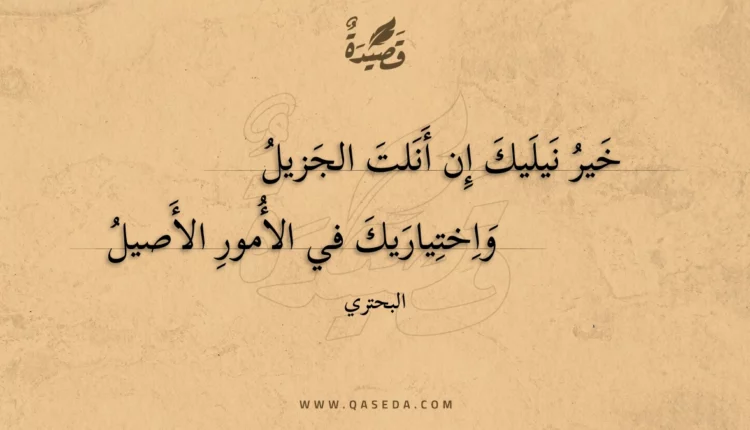 قَصِيْدَةٌ
خَيرُ نَيلَيكَ إِن أَنَلتَ الجَزيلُ
وَاِختِيارَيكَ في الأُمورِ الأَصيلُ
البحتري
WWW.QASEDA.COM